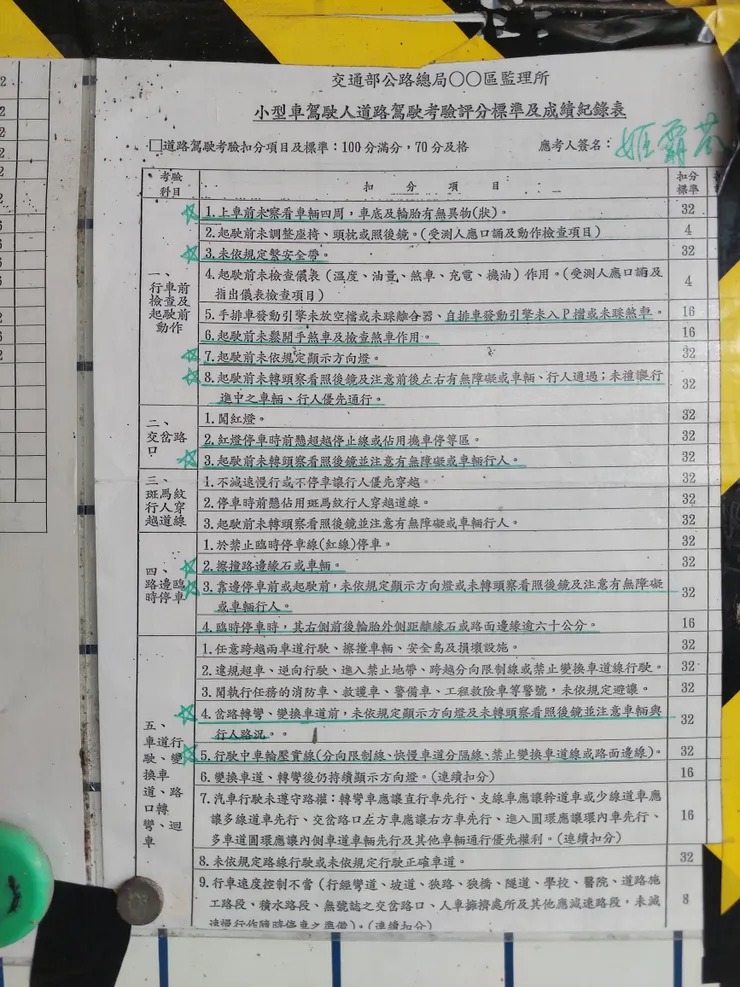 交通部公路總局○○區監理所
小型車駕駛人道路駕駛考驗評分標準及成績紀錄表
□道路駕駛考驗扣分項目及標準：100分滿分，70分及格 應考人簽名：
考驗科目 扣分項目 扣分標準
一、行車前檢查及起駛前動作
1.上車前未察看車輛四周，車底及輪胎有無異物(狀)。 32
2.起駛前未調整座椅、頭枕或照後鏡。(受測人應口誦及動作檢查項目) 4
3.未依規定繫安全帶。 32
4.起駛前未檢查儀表（溫度、油量、煞車、充電、機油）作用。(受測人應口誦及
指出儀表檢查項目) 4
5.手排車發動引擎未放空檔或未踩離合器、自排車發動引擎未入P檔或未踩煞車。 16
6.起駛前未鬆開手煞車及檢查煞車作用。 16
7.起駛前未依規定顯示方向燈。 32
8.起駛前未轉頭察看照後鏡及注意前後左右有無障礙或車輛、行人通過；未禮讓行
進中之車輛、行人優先通行。 32
二、交岔路口
1.闖紅燈。 32
2.紅燈停車時前懸超越停止線或佔用機車停等區。 32
3.起駛前未轉頭察看照後鏡並注意有無障礙或車輛行人。 32
三、斑馬紋行人穿越道線
1.不減速慢行或不停車讓行人優先穿越。 32
2.停車時前懸佔用斑馬紋行人穿越道線。 32
3.起駛前未轉頭察看照後鏡並注意有無障礙或車輛行人。 32
四、路邊臨時停車
1.於禁止臨時停車線(紅線)停車。 32
2.擦撞路邊緣石或車輛。 32
3.靠邊停車前或起駛前，未依規定顯示方向燈或未轉頭察看照後鏡及注意有無障礙
或車輛行人。 32
4.臨時停車時，其右側前後輪胎外側距離緣石或路面邊緣逾六十公分。 16
五、車道行駛、變換車道、路口轉彎、迴車
1.任意跨越兩車道行駛、擦撞車輛、安全島及損壞設施。 32
2.違規超車、逆向行駛、進入禁止地帶、跨越分向限制線或禁止變換車道線行駛。 32
3.聞執行任務的消防車、救護車、警備車、工程救險車等警號，未依規定避讓。 32
4.岔路轉彎、變換車道前，未依規定顯示方向燈及未轉頭察看照後鏡並注意車輛與
行人路況。 32
5.行駛中車輪壓實線(分向限制線、快慢車道分隔線、禁止變換車道線或路面邊線)。 32
6.變換車道、轉彎後仍持續顯示方向燈。(連續扣分) 16
7.汽車行駛未遵守路權：轉彎車應讓直行車先行、支線車應讓幹道車或少線道車應
讓多線道車先行、交岔路口左方車應讓右方車先行、進入圓環應讓環內車先行、
多車道圓環應讓內側車道車輛先行及其他車輛通行優先權利。(連續扣分) 16
8.未依規定路線行駛或未依規定行駛正確車道。 32
9.行車速度控制不當（行經彎道、坡道、狹路、狹橋、隧道、學校、醫院、道路施
工路段、積水路段、無號誌之交岔路口、人車擁擠處所及其他應減速路段，未減
速慢行作隨時停車之準備)。(連續扣分) 8